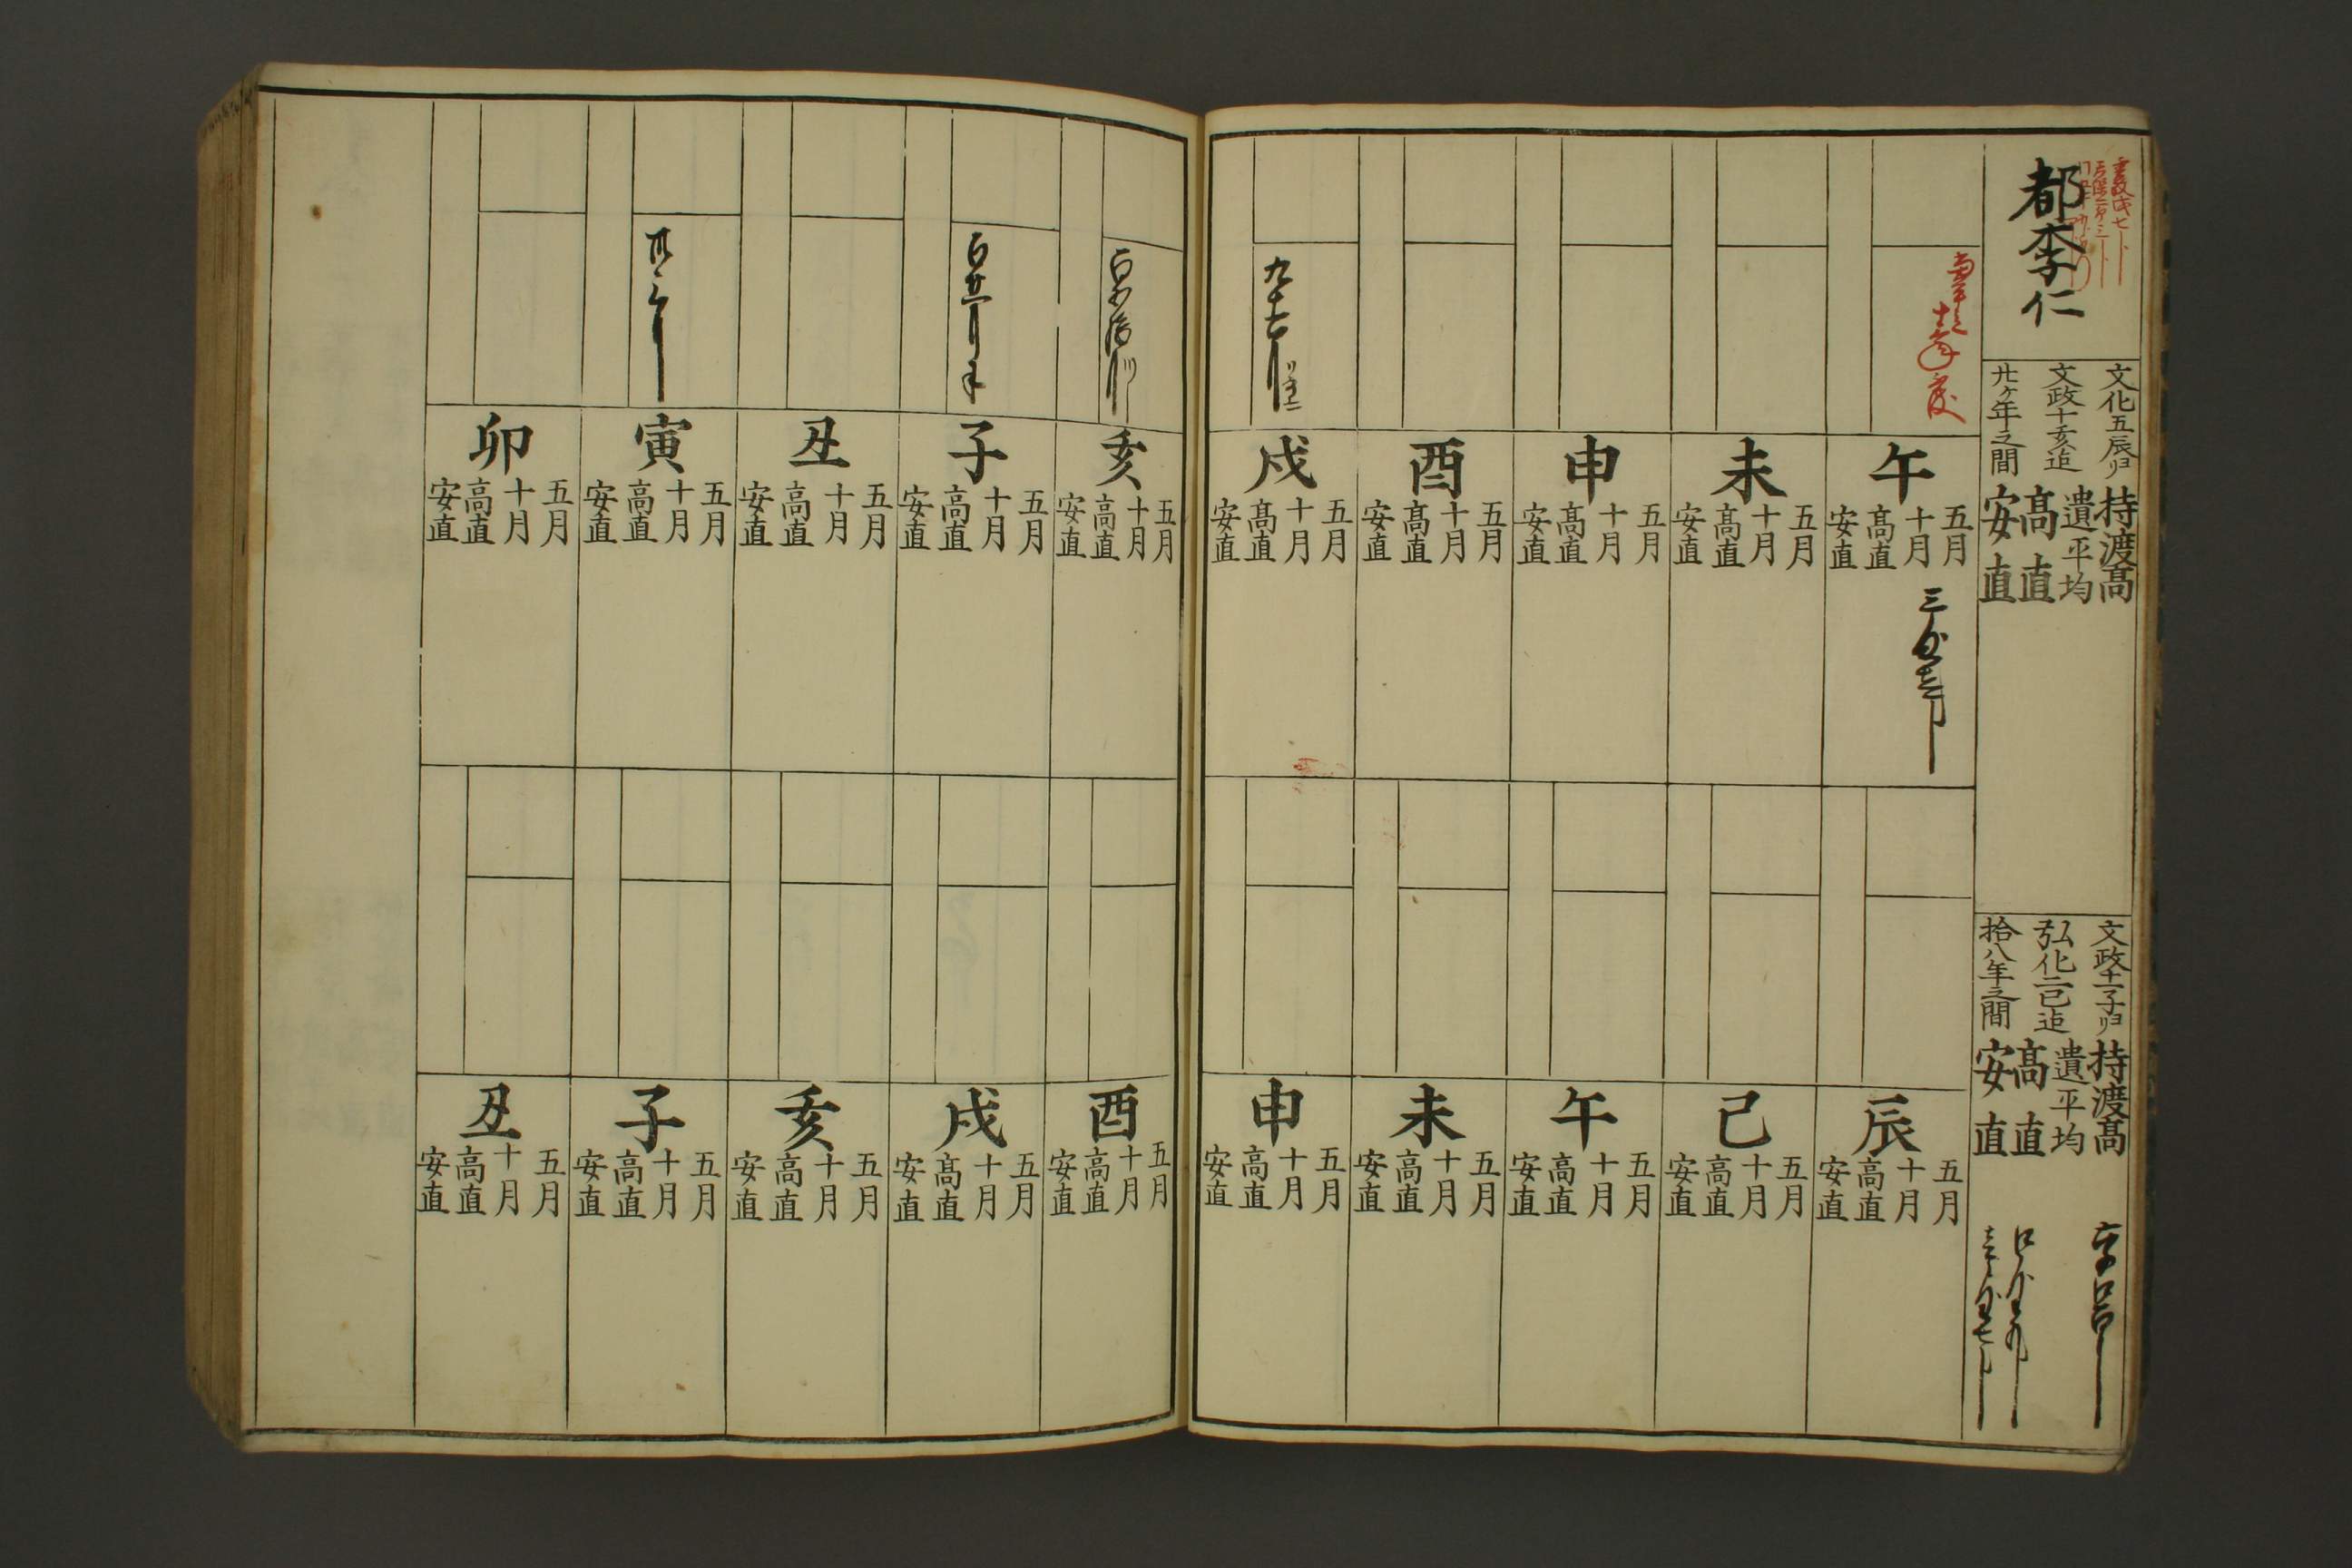 都李仁
文化五辰ヨリ
文政十亥迠
廿ケ年之間
持渡髙
遣平均
髙直
安直
文政十一子ヨリ
弘化二巳迠
拾八年之間
持渡髙
遣平均
髙直
安直
午
五月
十月
髙直
安直
未
五月
十月
髙直
安直
申
五月
十月
髙直
安直
酉
五月
十月
髙直
安直
戌
五月
十月
髙直
安直
辰
五月
十月
髙直
安直
巳
五月
十月
髙直
安直
午
五月
十月
髙直
安直
未
五月
十月
髙直
安直
申
五月
十月
髙直
安直
亥
五月
十月
髙直
安直
子
五月
十月
髙直
安直
丑
五月
十月
髙直
安直
寅
五月
十月
髙直
安直
卯
五月
十月
髙直
安直
酉
五月
十月
髙直
安直
戌
五月
十月
髙直
安直
亥
五月
十月
髙直
安直
子
五月
十月
髙直
安直
丑
五月
十月
髙直
安直